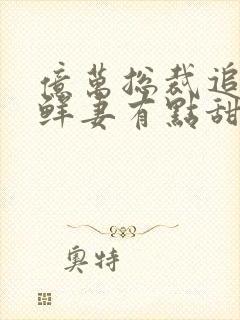 億萬總裁追
鮮妻有點甜
奧特